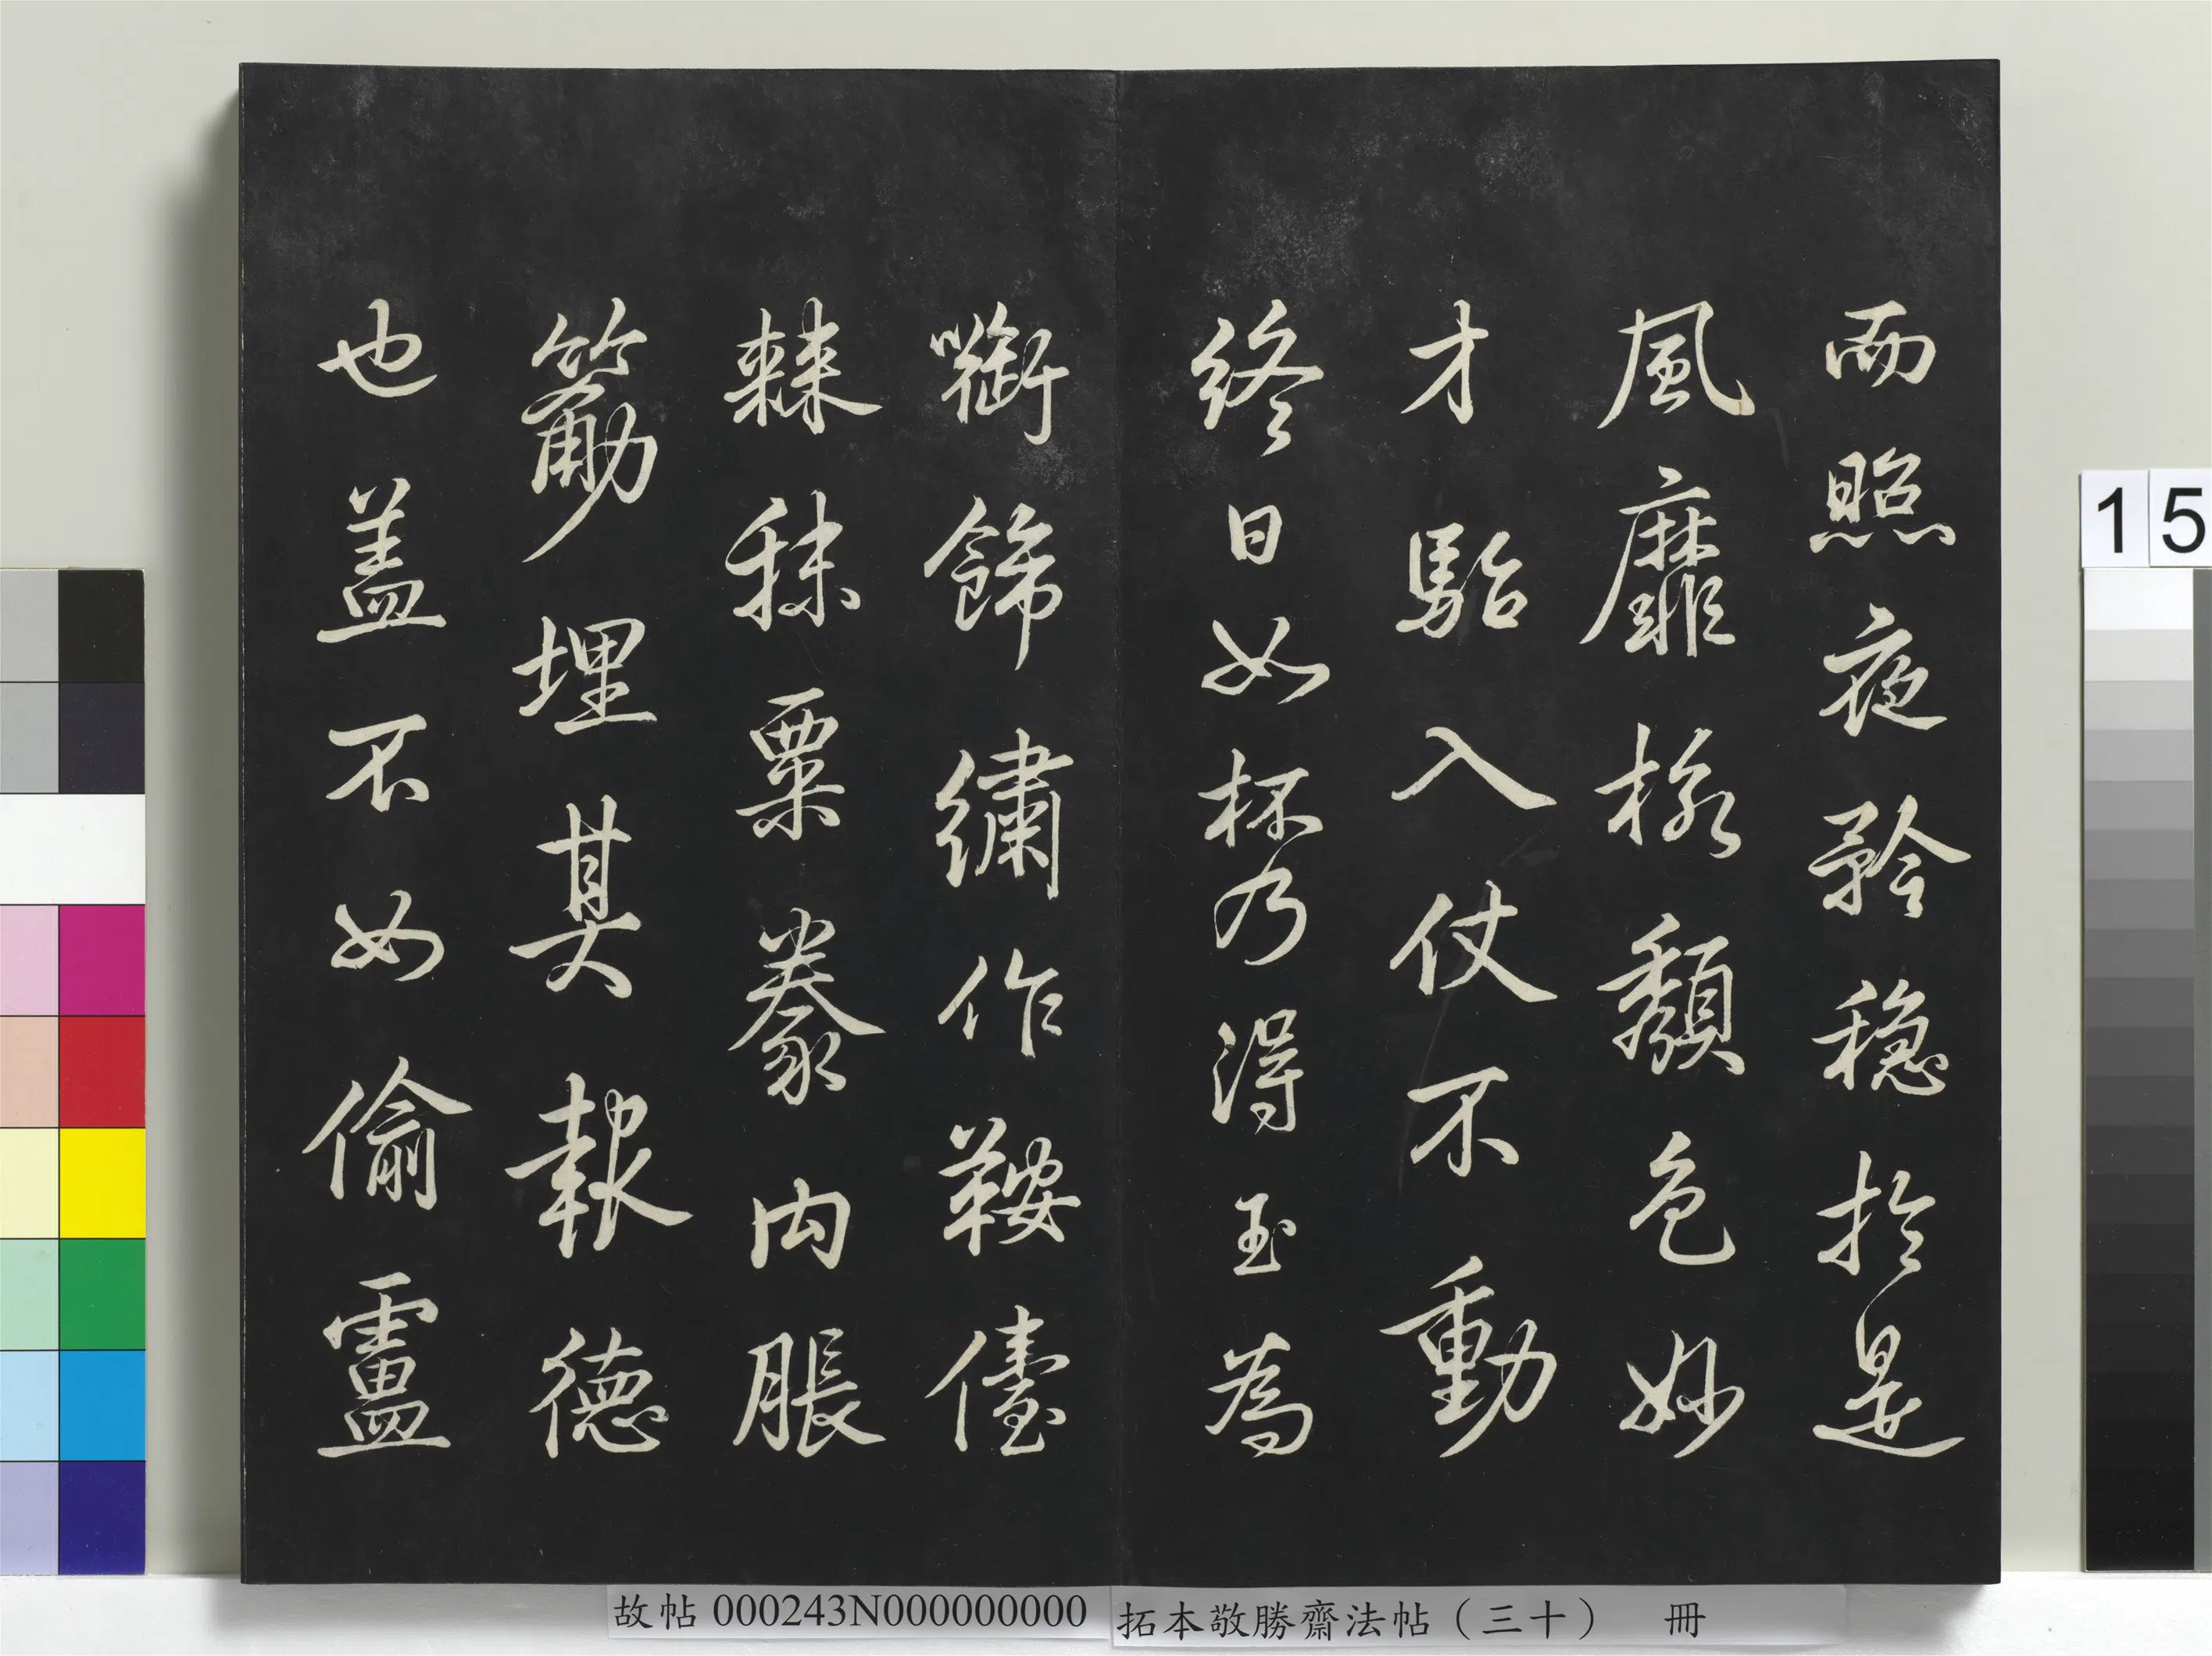 而照夜矜穩於是
風靡格頽色妙
才駘入仗不動
終日如杯乃得玉為
銜飾繡作鞍儓
棘秣粟豢肉脹
筋埋其報德
也蓋不如偷盧
15
故帖 000243N000000000 拓本敬勝齋法帖（三十） 冊